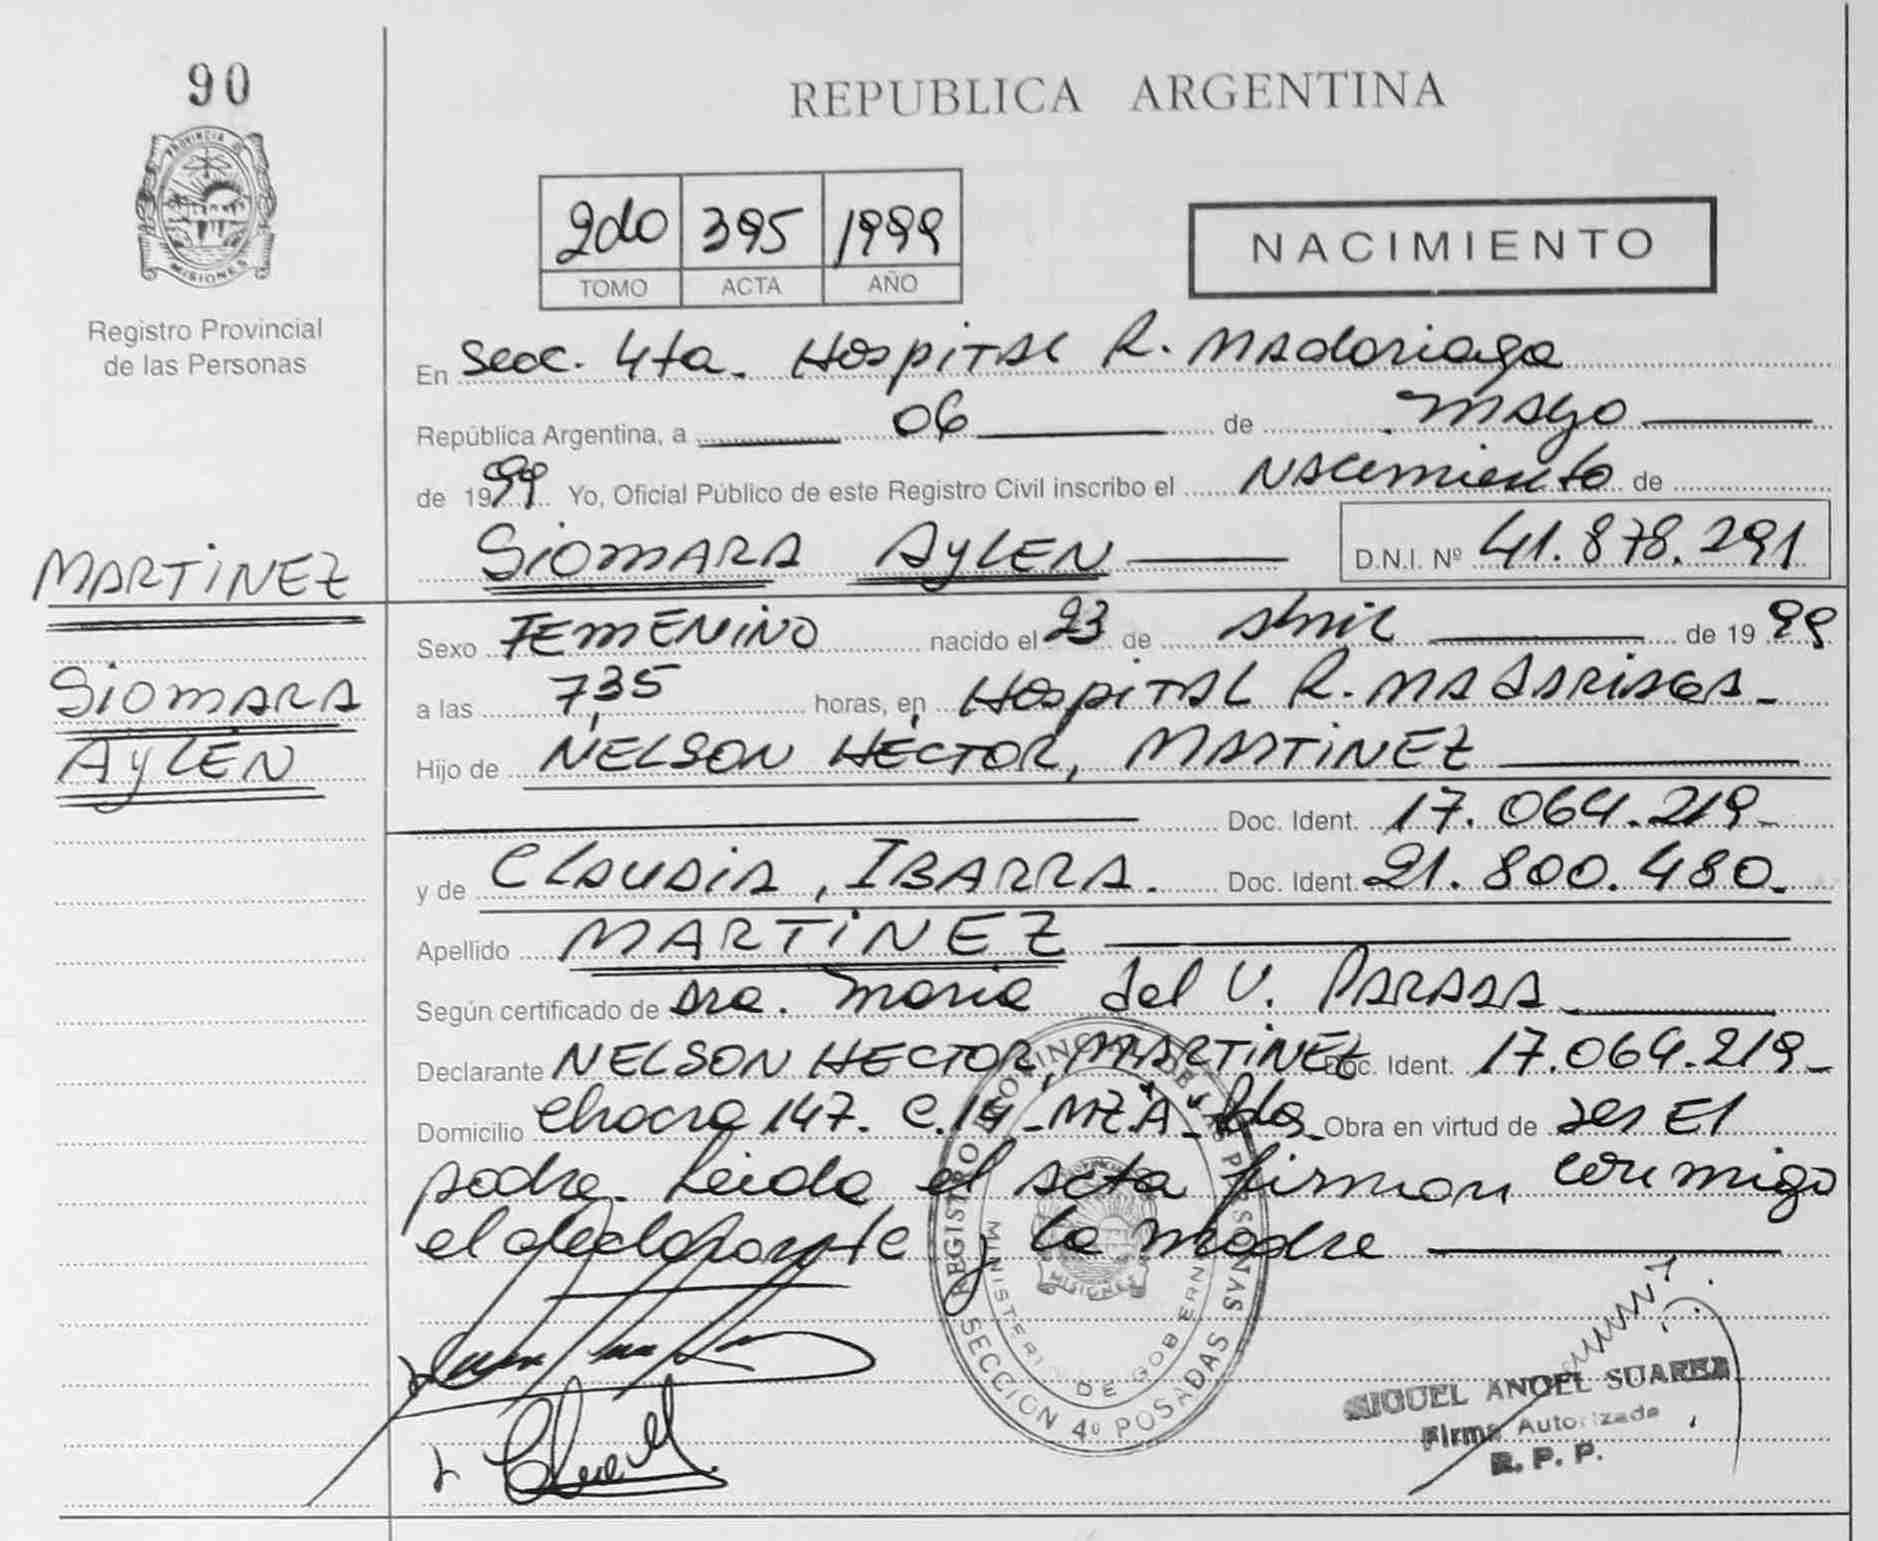 90
REPUBLICA ARGENTINA
PROVINCIA DE
MISIONES
Registro Provincial
de las Personas
2do 395 1999
TOMO ACTA AÑO
NACIMIENTO
En Secc. 4ta. Hospital R. Madariaga
República Argentina, a 06 de mayo
de 1999 Yo, Oficial Público de este Registro Civil inscribo el Nacimiento de
SiOMARA AyLEN D.N.I. Nº 41.878.291
MARTiNEZ
SiOMARA
AyLEN
Sexo FEMENiNO nacido el 23 de abril de 1999
a las 7,35 horas, en Hospital R. MADARiAGA
Hijo de NELSON HECTOR, MARTiNEZ
Doc. Ident. 17.064.219
y de CLAUDiA, IBARRA. Doc. Ident. 21.800.480
Apellido MARTiNEZ
Según certificado de Dra. Maria del V. PARADA
Declarante NELSON HECTOR, MARTiNEZ Doc. Ident. 17.064.219
Domicilio Chacra 147. C.14 MZ."A" Pdas Obra en virtud de ser El
padre. Leida el acta firman conmigo
el declarante y la madre
REGISTRO PROVINCIAL DE LAS PERSONAS
MINISTERIO DE GOBIERNO
MISIONES
SECCIÓN 4º POSADAS
MIGUEL ANGEL SUAREZ
Firma Autorizada
R. P. P.